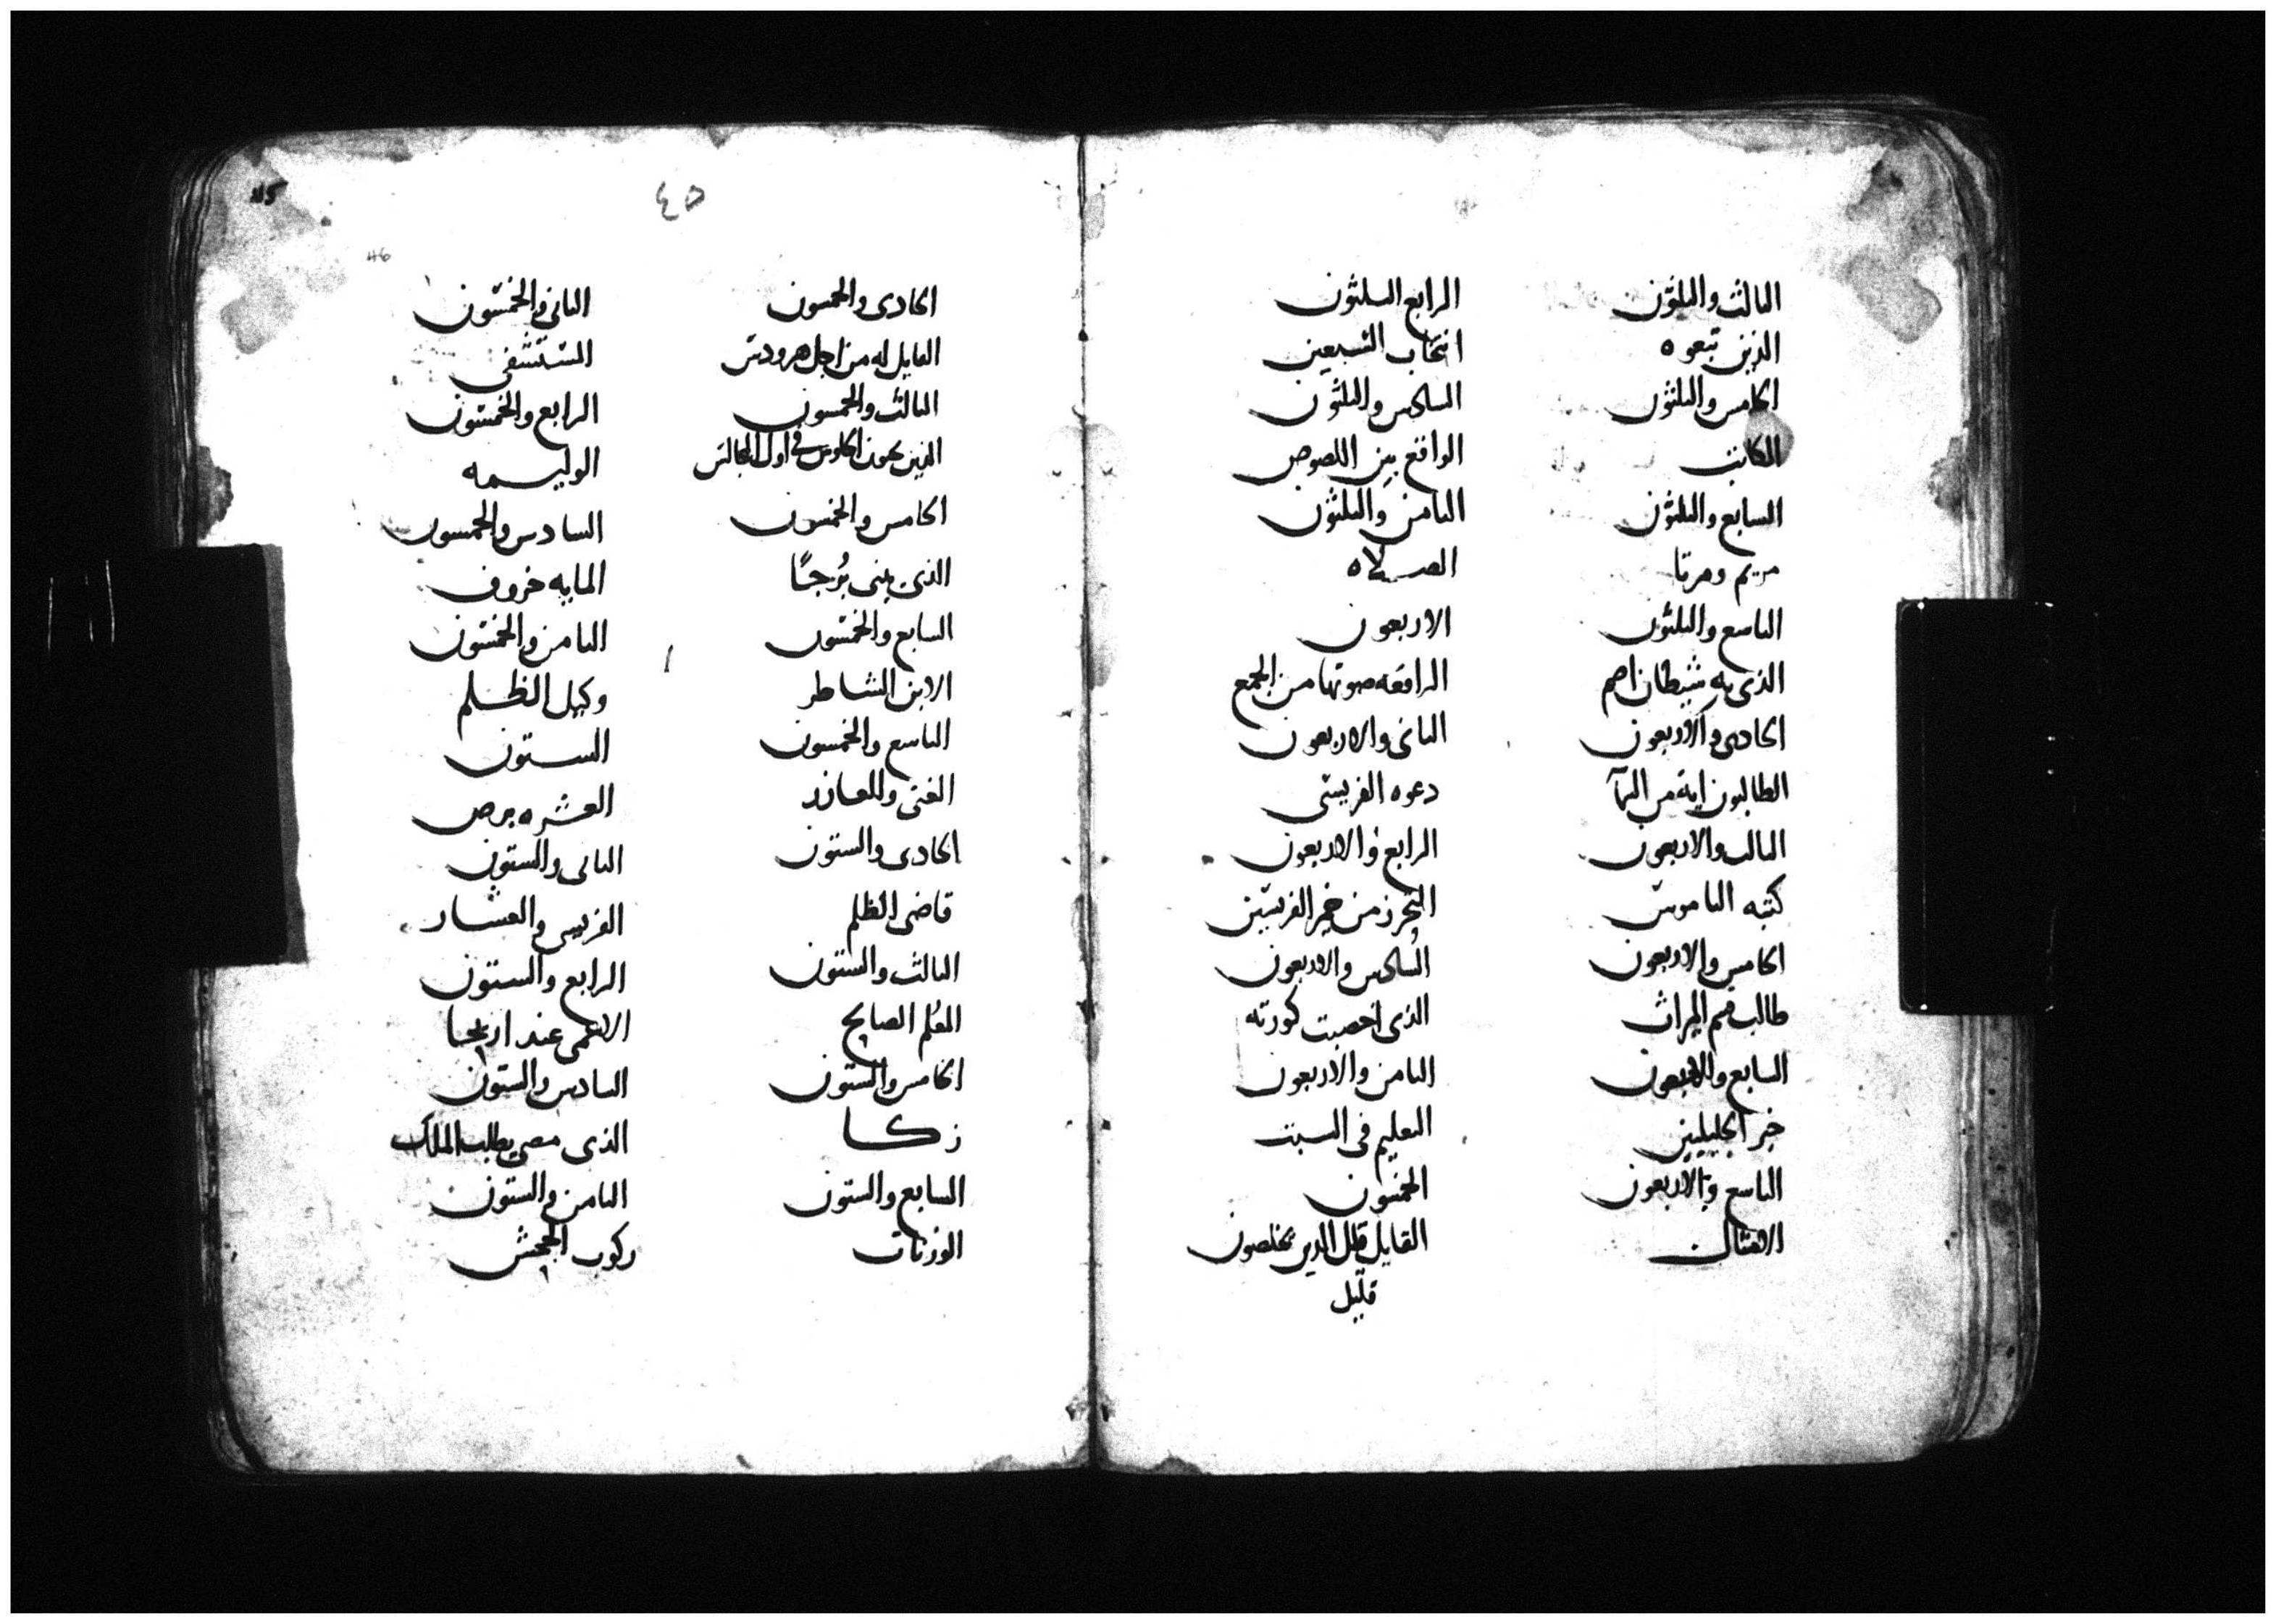 الثالث والثلثون
الذين تبعوه
الخامس والثلثون
الكاتب
السابع والثلثون
مريم ومرتا
التاسع والثلثون
الذى به شيطان اصم
الحادى والاربعون
الطالبون اية من السما
الثالث والاربعون
كتبه الناموس
الخامس والاربعون
طالب قسم الميراث
السابع والاربعون
خبر الجليليين
التاسع والاربعون
الامثال
الرابع الثلثون
انتخاب السبعين
السادس والثلثون
الواقع بين اللصوص
الثامن والثلثون
الصلاه
الاربعون
الرافعه صوتها من الجمع
الثانى والاربعون
دعوه الفريسى
الرابع والاربعون
التحرز من خمير الفريسين
السادس والاربعون
الذى اخصبت كورته
الثامن والاربعون
التعليم فى السبت
الخمسون
القايل قليل الذين يخلصون
قليل
٤٥
46
الحادى والخمسون
القايل له من اجل هرودس
الثالث والخمسون
الذين يحبون الجلوس فى اول المجالس
الخامس والخمسون
الذى يبنى برجًا
السابع والخمسون
الابن الشاطر
التاسع والخمسون
الغنى وللعازر
الحادى والستون
قاضى الظلم
الثالث والستون
المعلم الصالح
الخامس والستون
زكا
السابع والستون
الوزنات
الثانى والخمسون
المستشفى
الرابع والخمسون
الوليمه
السادس والخمسون
المايه خروف
الثامن والخمسون
وكيل الظلم
الستون
العشره برص
الثانى والستون
الفريسى والعشار
الرابع والستون
الاعمى عند اريحا
السادس والستون
الذى مضى يطلب الملك
الثامن والستون
ركوب الجحش